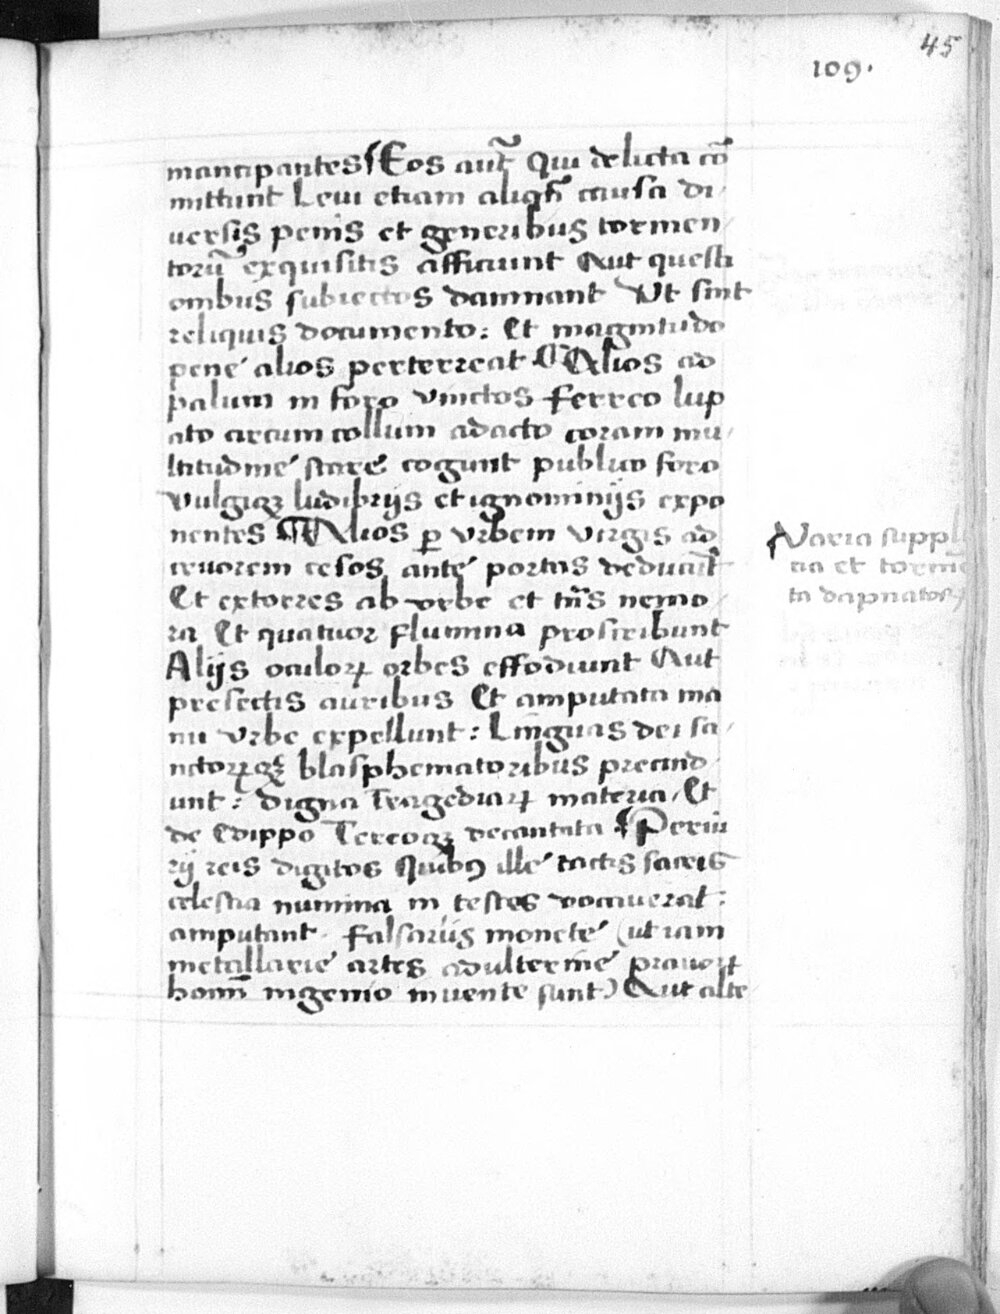 45
109.
mancipantes Eos aut̃ Qui delicta cõ
mittunt Leui etiam aliqñ causa di
uersis penis et generibus tormen
torũ exquisitis afficiunt Aut questi
onibus subiectos damnant Vt sint
reliquis documento: Et magnitudo
pene alios perterreat Alios ad
palum in foro vinctos ferreo lup
ato circum collum adacto coram mu
ltitudine stare cogunt publico foro
vulgiqꝫ ludibrijs et ignominijs expo
nentes Alios ꝑ vrbem virgis ad
cruorem cesos ante portas deducũt
Et extorres ab vrbe et tñs nemo
ra Et quatuor flumina proscribunt
Alijs oculoꝝ orbes effodiunt Aut
presectis auribus Et amputata ma
nu vrbe expellunt: Linguas dei sa
nctoꝝqꝫ blasphematoribus precind
unt: digna Tragediaꝝ materia, Et
de Edippo Tereoqꝫ decantata Periu
rij reis digitos Quibꝰ ille tactis sacris
celestia numina in testes vocauerat:
amputant. falsariis monete (ut iam
metallarie artes adulterine prauoꝝ
homĩ ingenio inuente sunt) Aut alte
Varia suppli
cia et torme
ta dapnatoꝝ